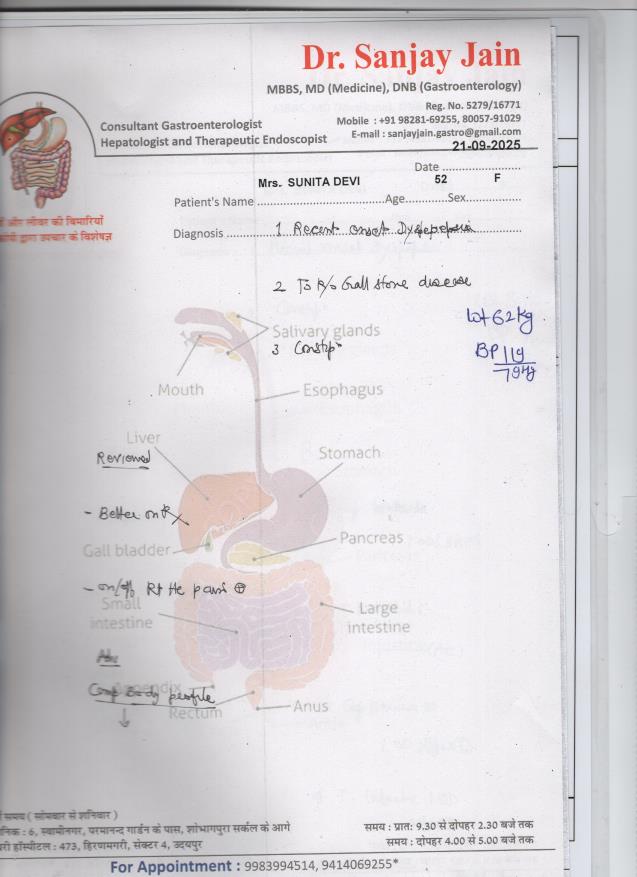 Dr. Sanjay Jain
MBBS, MD (Medicine), DNB (Gastroenterology)
Reg. No. 5279/16771
Consultant Gastroenterologist
Mobile : +91 98281-69255, 80057-91029
Hepatologist and Therapeutic Endoscopist
E-mail : sanjayjain.gastro@gmail.com
21-09-2025
Date
Mrs. SUNITA DEVI 52 F
Patient's Name Age Sex
और लीवर की बिमारियों
द्वारा उपचार के विशेषज्ञ
Diagnosis 1 Recent onset Dyspepsia
2 To R/o Gall stone disease
Wt 62 kg
Salivary glands
3 Constip
BP 119
79
Mouth
Esophagus
Liver
Stomach
Reviewed
- Better on Rx
Pancreas
Gall bladder
- on/off Rt pain ⊕
Small
intestine
Large
intestine
Adv
Comp Body profile
↓
Appendix
Rectum
Anus
समय ( सोमवार से शनिवार )
6, स्वामीनगर, परमानन्द गार्डन के पास, शोभागपुरा सर्कल के आगे
समय : प्रातः 9.30 से दोपहर 2.30 बजे तक
हॉस्पीटल : 473, हिरणमगरी, सेक्टर 4, उदयपुर
समय : दोपहर 4.00 से 5.00 बजे तक
For Appointment : 9983994514, 9414069255*